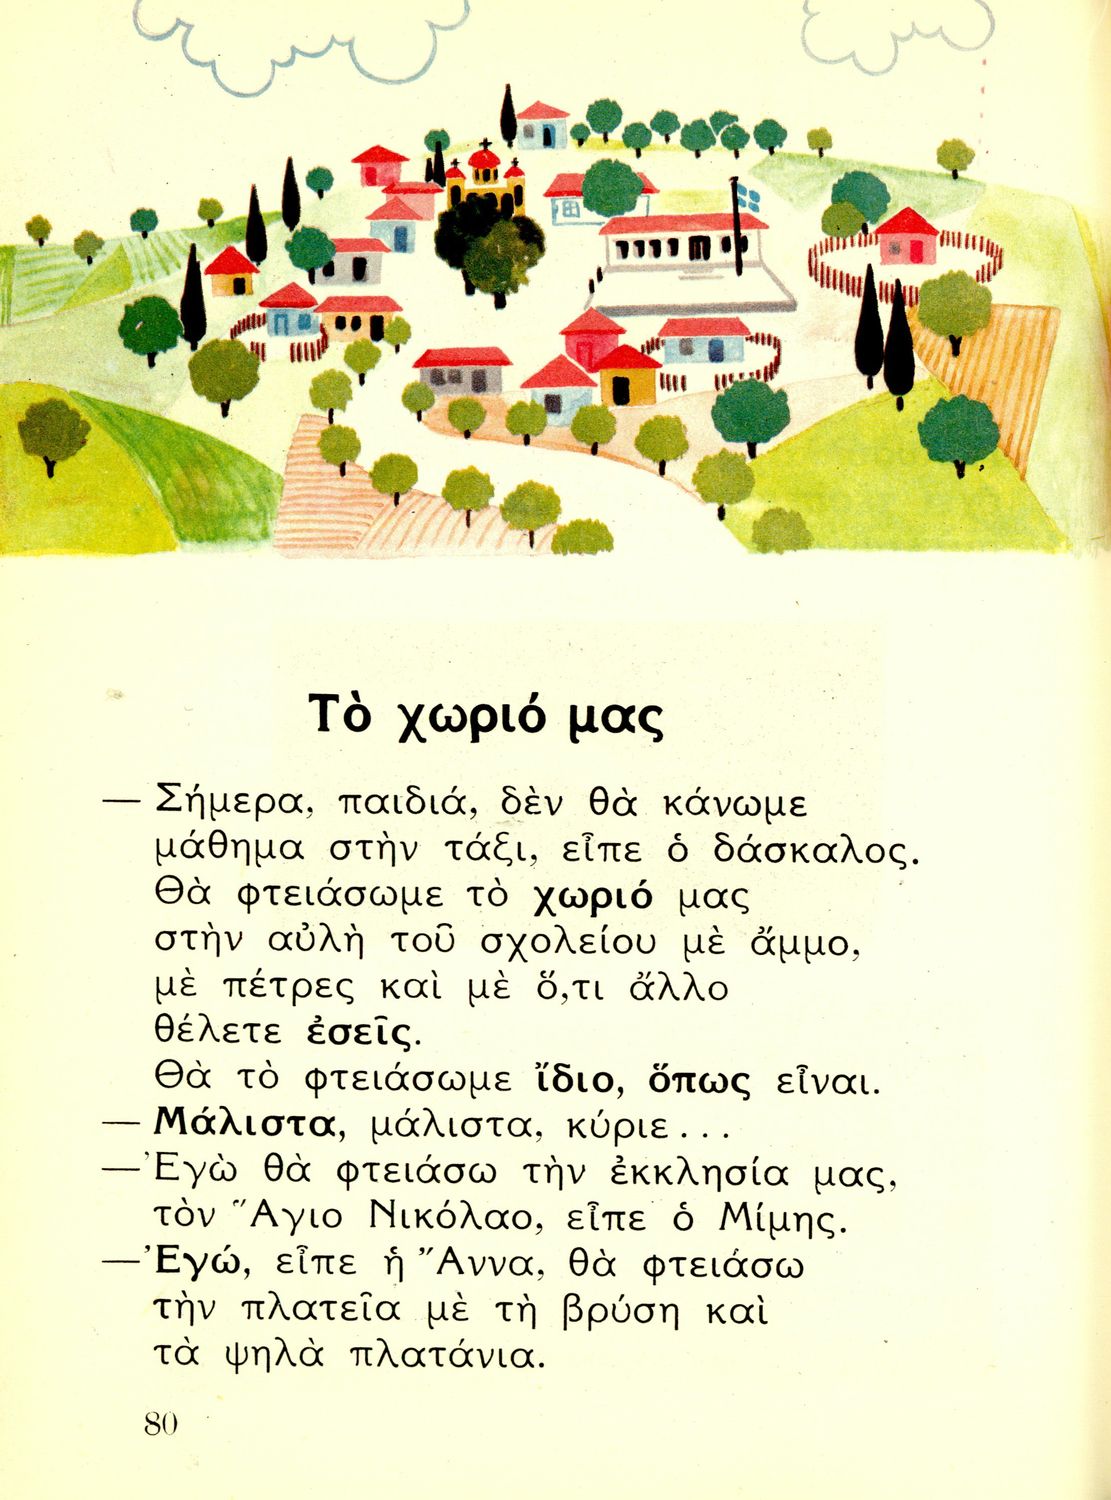 Τὸ χωριό μας
— Σήμερα, παιδιά, δὲν θὰ κάνωμε
μάθημα στὴν τάξι, εἶπε ὁ δάσκαλος.
Θὰ φτειάσωμε τὸ χωριό μας
στὴν αὐλὴ τοῦ σχολείου μὲ ἄμμο,
μὲ πέτρες καὶ μὲ ὅ,τι ἄλλο
θέλετε ἐσεῖς.
Θὰ τὸ φτειάσωμε ἴδιο, ὅπως εἶναι.
— Μάλιστα, μάλιστα, κύριε...
— Ἐγὼ θὰ φτειάσω τὴν ἐκκλησία μας,
τὸν Ἅγιο Νικόλαο, εἶπε ὁ Μίμης.
— Ἐγώ, εἶπε ἡ Ἄννα, θὰ φτειάσω
τὴν πλατεῖα μὲ τὴ βρύση καὶ
τὰ ψηλὰ πλατάνια.
80